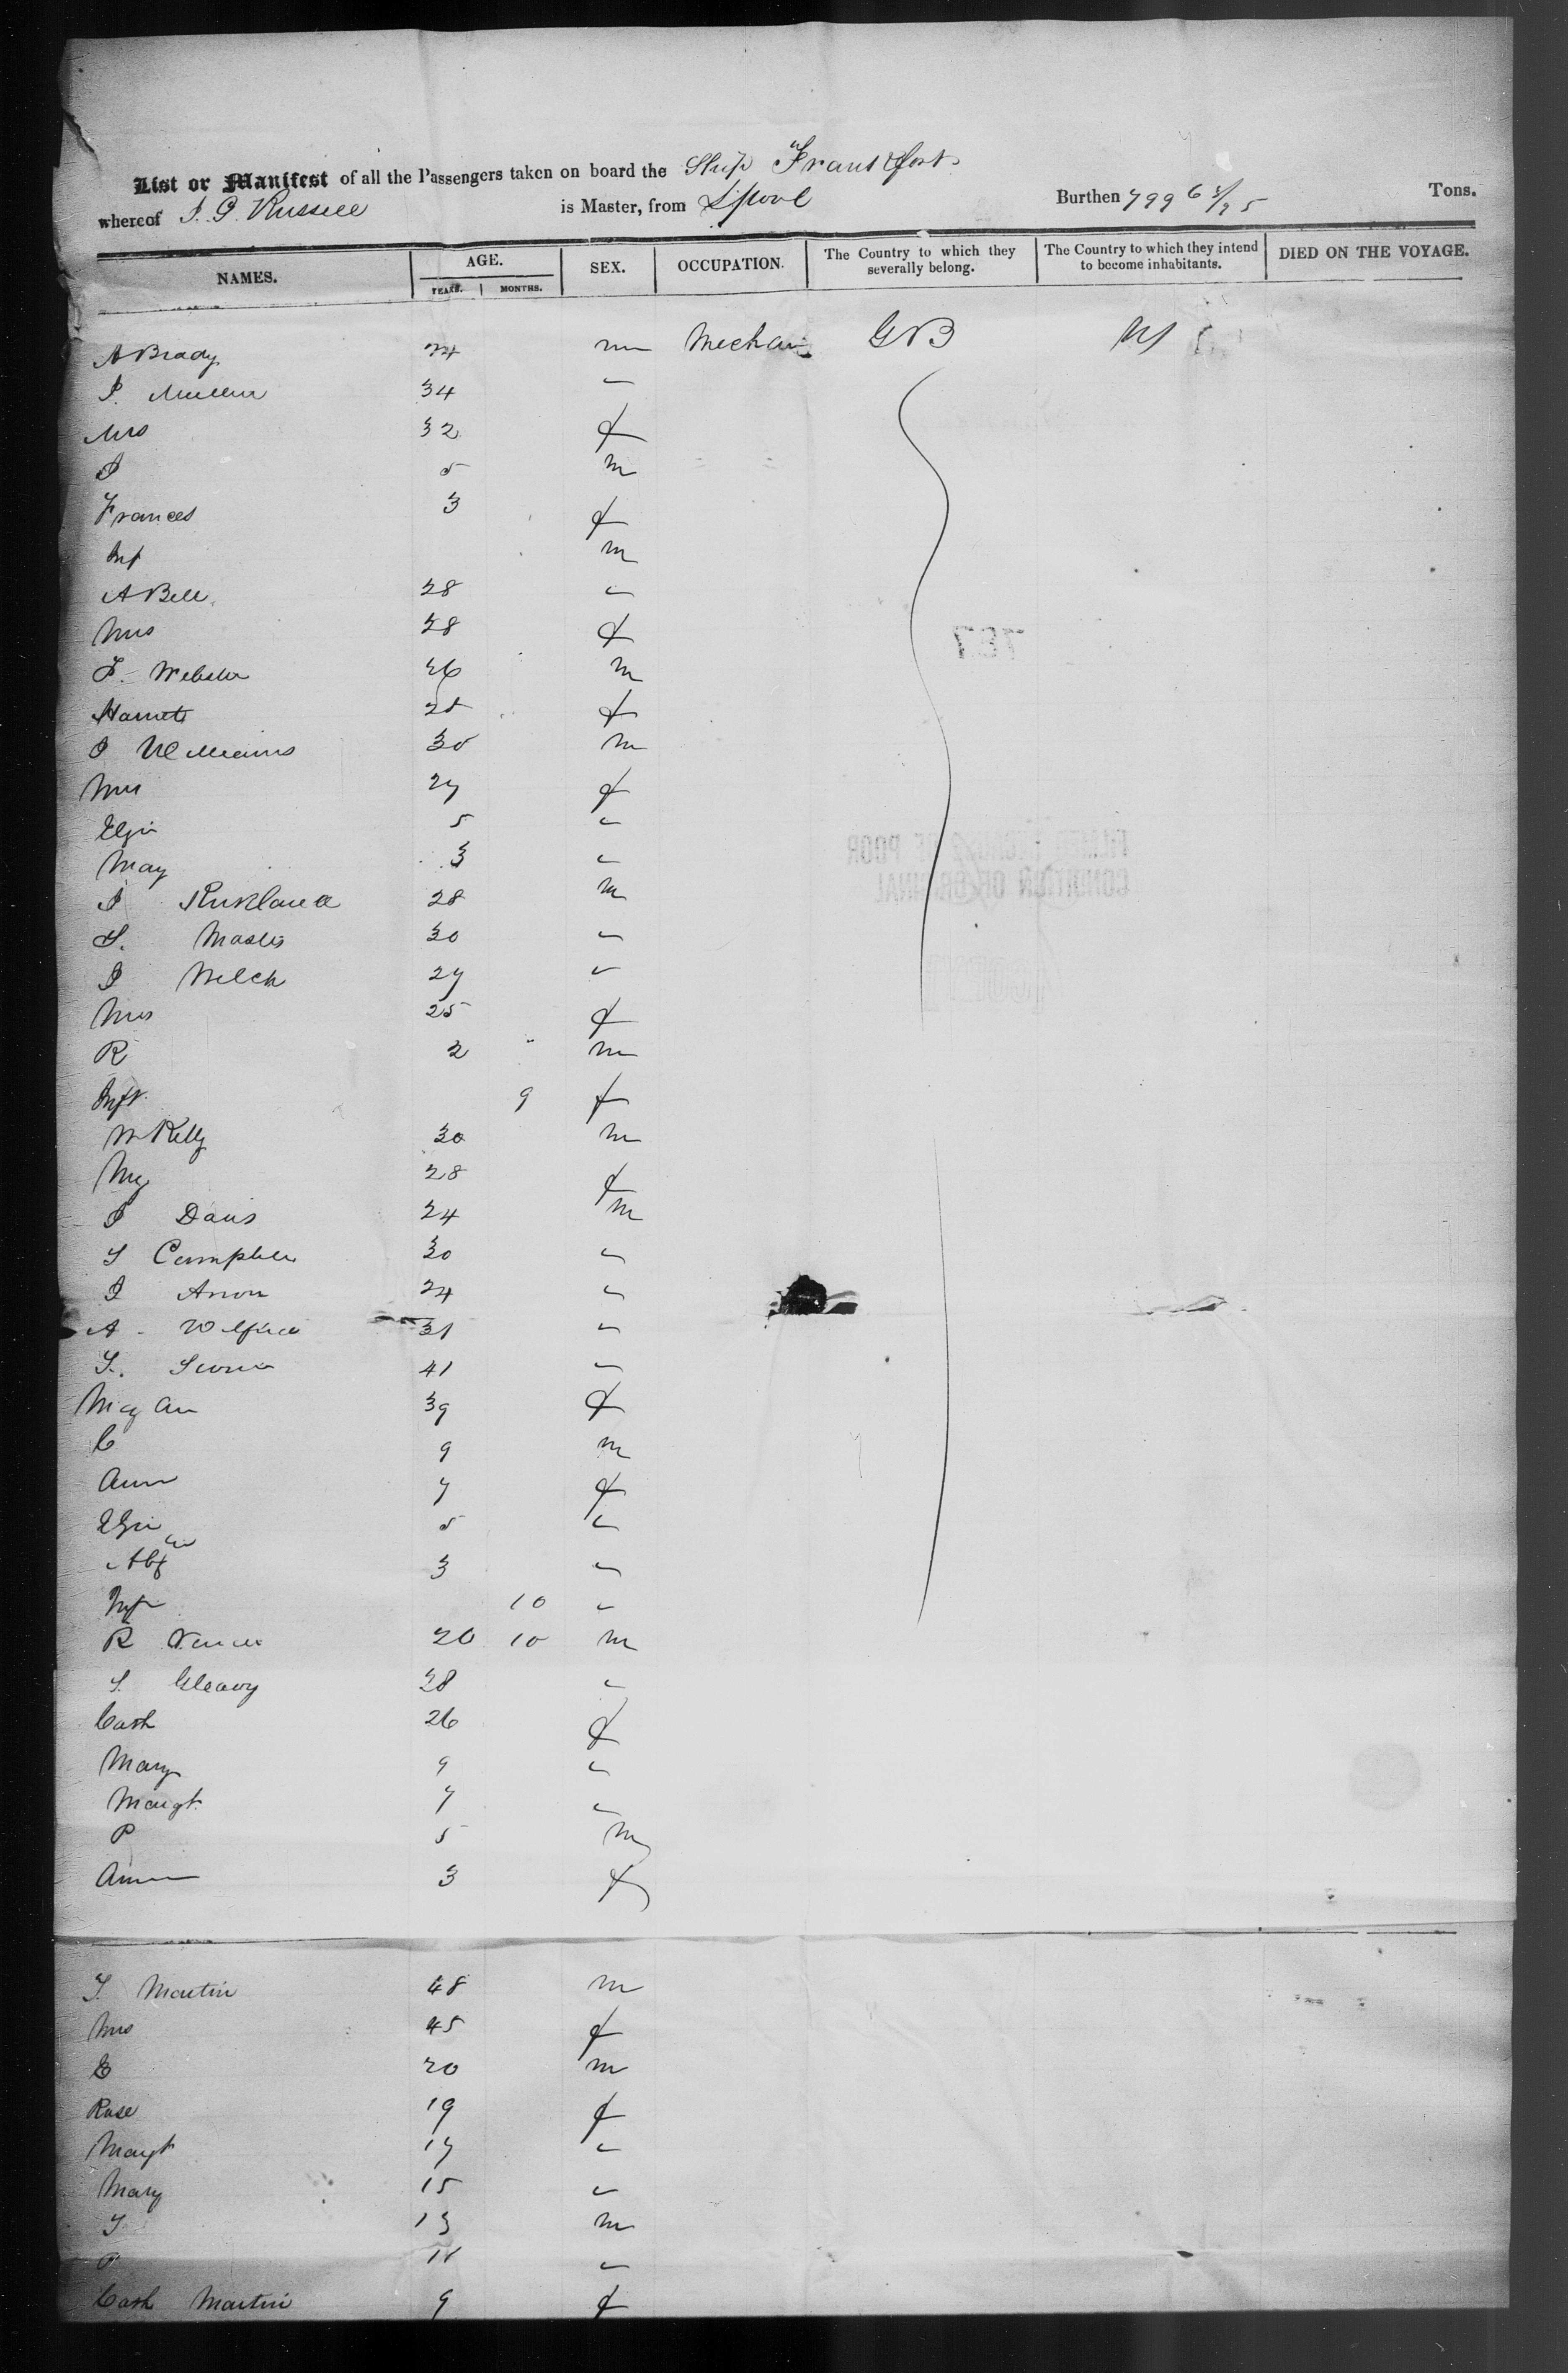 List or Manifest of all the Passengers taken on board the Ship Frankfort
whereof J. G. Russell is Master, from L'pool Burthen 799 Tons.
NAMES. AGE. YEARS. MONTHS. SEX. OCCUPATION. The Country to which they severally belong. The Country to which they intend to become inhabitants. DIED ON THE VOYAGE.
A Brady 24 m Mechan GB US
J. Mullen 34 "
Mrs 32 f
J 5 m
Frances 3 f
Inf m
A Bell 28 "
Mrs 28 f
J. Webster 26 m
Harriet 25 f
J Williams 30 m
Mrs 27 f
Elza 5 "
Mary 3 "
J Kirkland 28 m
S. Masters 30 "
J Welch 27 "
Mrs 25 f
R 2 m
Inft 9 f
W Kelly 30 m
My 28 f
J Davis 24 m
S Campbell 30 "
J 24 "
A 31 "
S. 41 "
My Ann 39 f
C 9 m
Ann 7 f
Elza 5 "
3 "
Inft 10 "
R 20 10 m
S. Gleavy 28 "
Cath 26 f
Mary 9 "
Margt 7 "
P 5 m
Ann 3 f
T. Martin 48 m
Mrs 45 f
E 20 m
Rose 19 f
Margt 17 "
Mary 15 "
T 13 m
P 11 "
Cath Martin 9 f